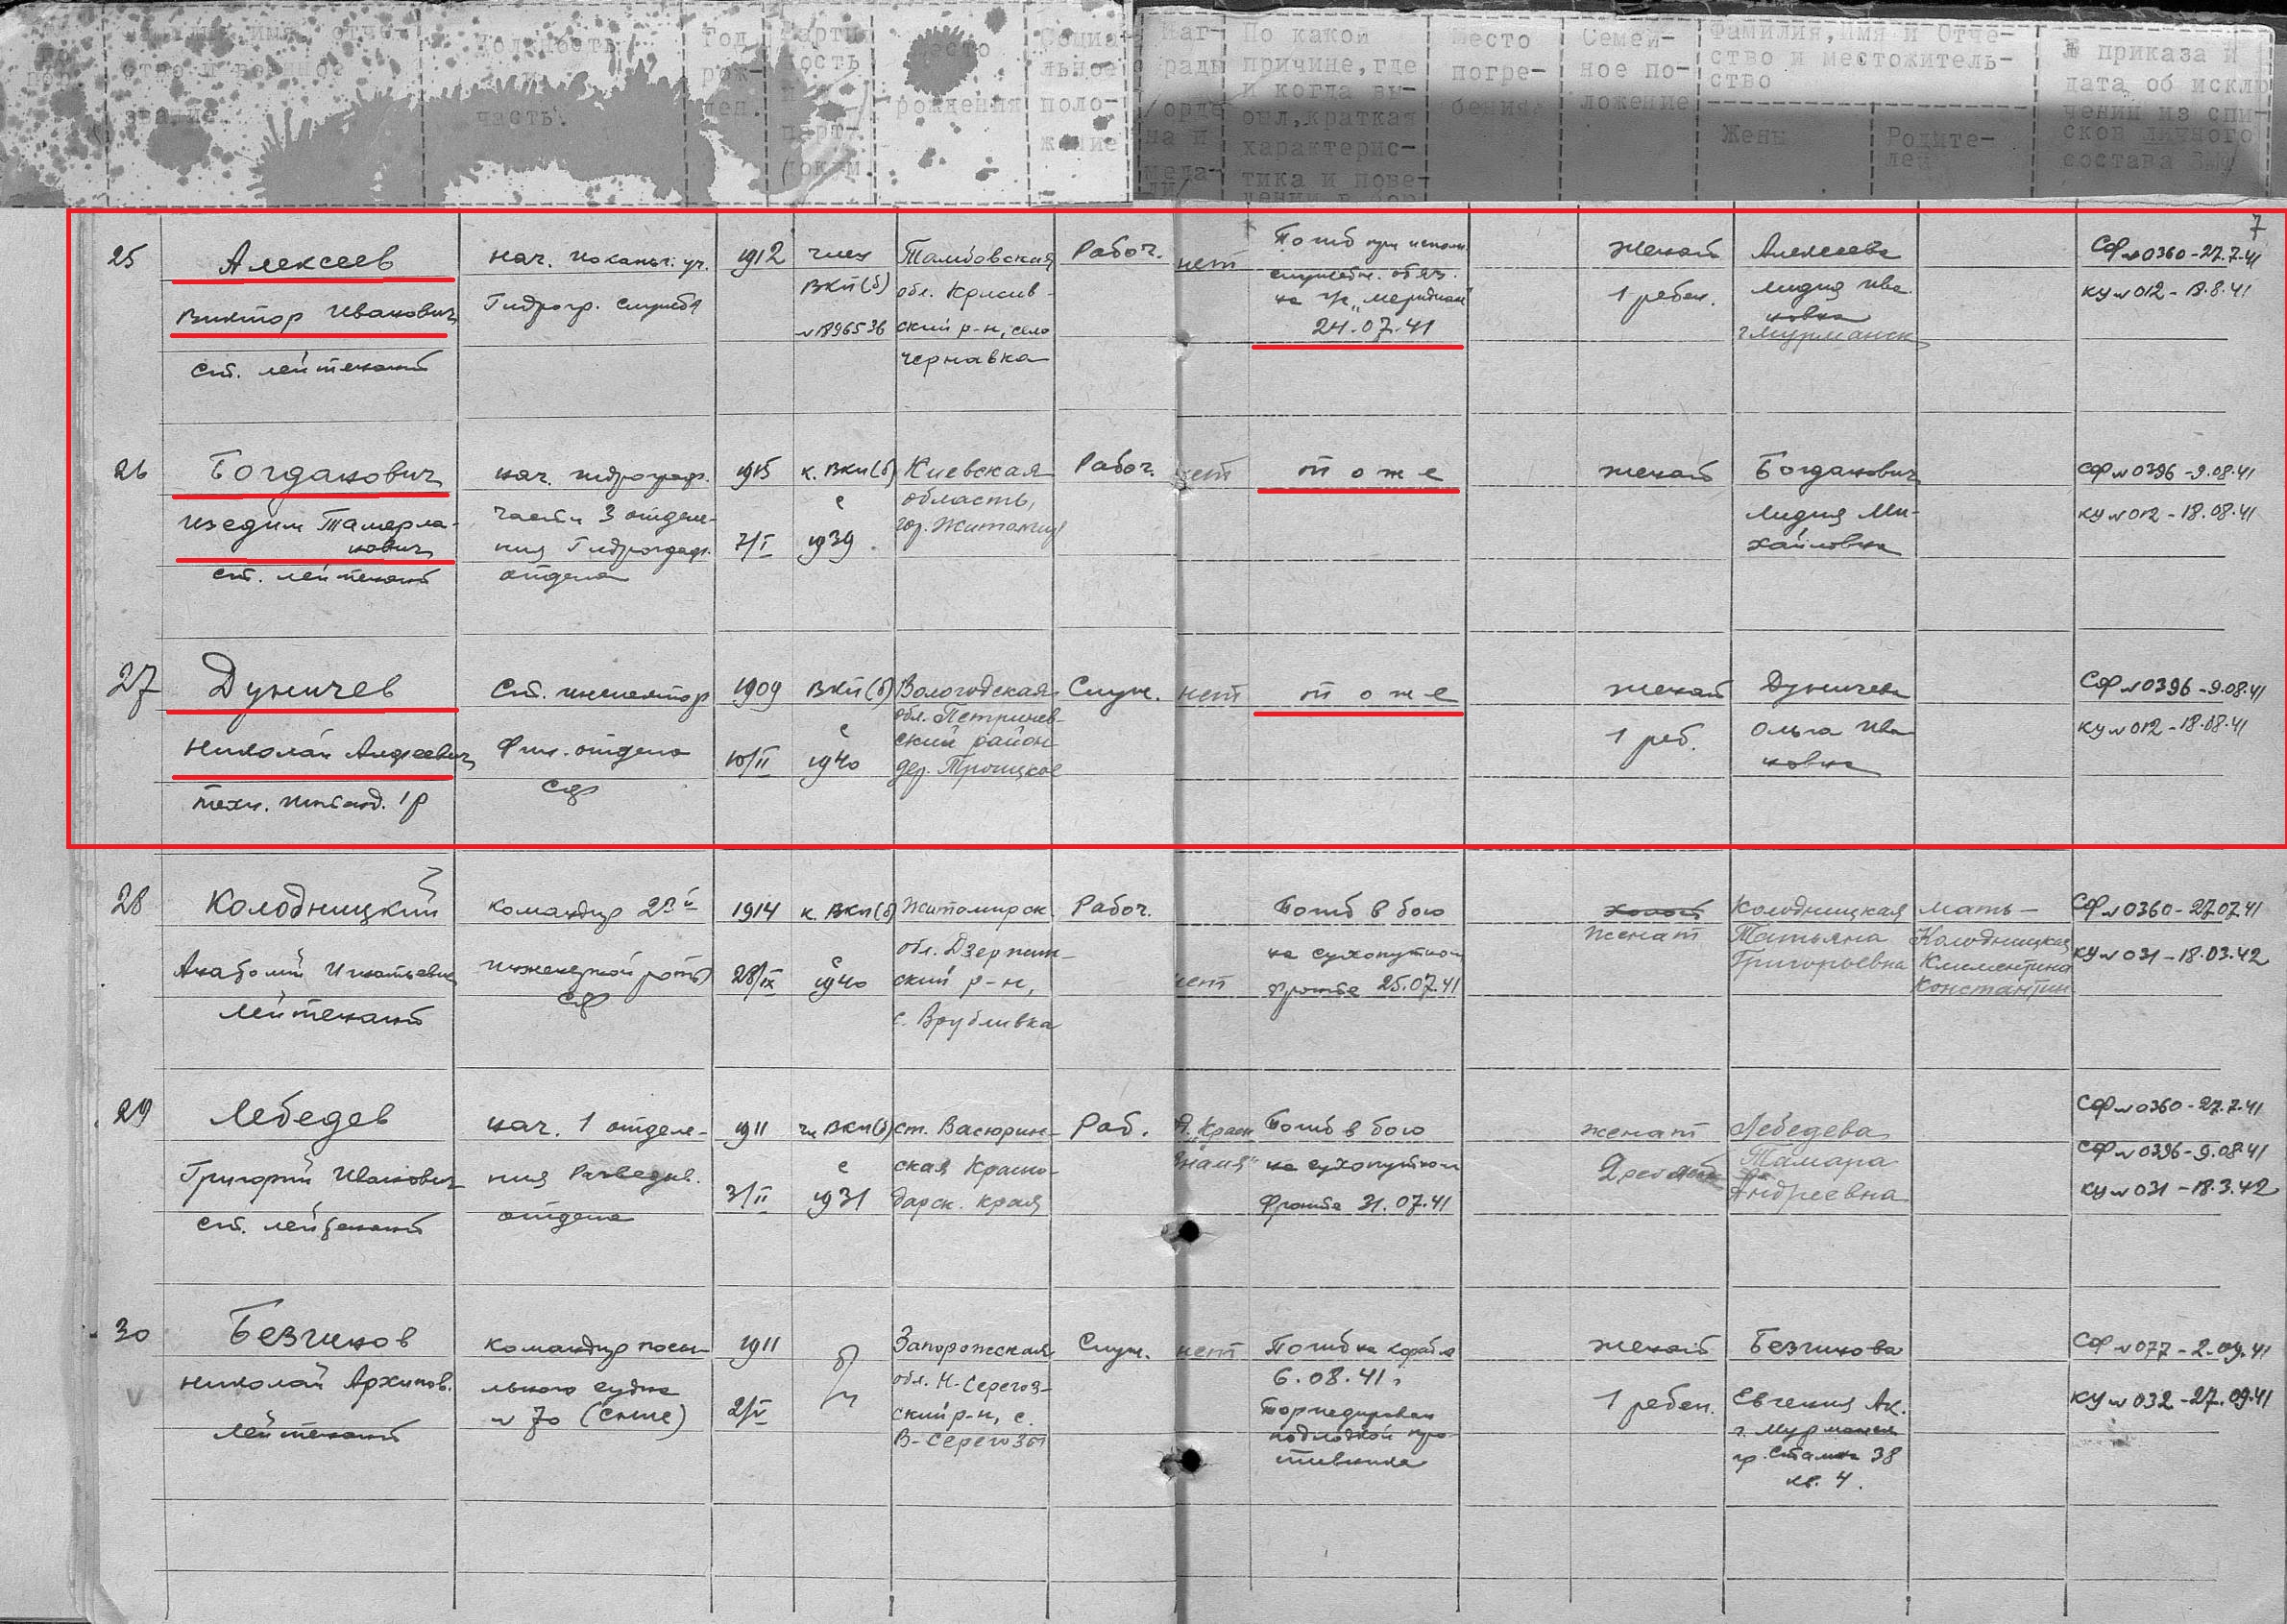 Должность
и
часть
Год
рож-
ден.
Место
рождения
Социа-
льное
поло-
жение
Наг-
рады
/орде
на и
меда-
ли/
По какой
причине, где
и когда вы-
был, краткая
характерис-
тика и пове-
Место
погре-
бения
Семей-
ное по-
ложение
Фамилия, Имя и Отче-
ство и местожитель-
ство
Жены
Родите-
лей
№ приказа и
дата об исклю
чении из спи-
сков личного
состава ВМФ
7
25
Алексеев
Виктор Иванович
ст. лейтенант
нач.
Гидрогр. Службы
1912
член
ВКП(б)
№1896536
Тамбовская
обл. Кирсанов-
ский р-н, село
Чернавка
Рабоч.
нет
Погиб при исполн.
служебн. обяз.
на г/с "Меридиан"
24.07.41
женат
1 ребен.
Алексеева
Лидия Ива
новна
г.Мурманск
СФ №0360-27.7.41
КУ №012-18.8.41
26
Богданович
Изедин Тамерла-
нович
ст. лейтенант
нач. гидрограф.
части 3 отделе-
ния Гидрограф.
отдела
1915
7/I
к. ВКП(б)
с
1939
Киевская
область,
гор. Житомир
Рабоч.
нет
то же
женат
Богданович
Лидия Ми-
хайловна
СФ №0396-9.08.41
КУ №012-18.08.41
27
Дуничев
Николай Андреевич
техн. интенд. 1р
Ст. инспектор
Фин. отдела
СФ
1909
10/II
ВКП(б)
с
1940
Вологодская
обл. Петринев-
ский район
дер. Троицкое
Служ.
нет
то же
женат
1 реб.
Дуничева
Ольга Ива
новна
СФ №0396-9.08.41
КУ №012-18.08.41
28
Колодницкий
Анатолий Игнатьевич
лейтенант
командир 2ой
инженерной роты
СФ
1914
28/IX
к. ВКП(б)
с
1940
Житомирск.
обл. Дзержин-
ский р-н,
с. Врублевка
Рабоч.
нет
Погиб в бою
на сухопутном
фронте 25.07.41
холост
женат
Колодницкая
Татьяна
Григорьевна
мать-
Колодницкая
Климентина
Константин.
СФ №0360-27.07.41
КУ №031-18.03.42
29
Лебедев
Григорий Иванович
ст. лейтенант
нач. 1 отделе-
ния Разведыв.
отдела
1911
3/II
чл ВКП(б)
с
1931
ст. Васюрин-
ская Красно-
дарск. края
Раб.
"Красн
Знамя"
Погиб в бою
на сухопутном
фронте 31.07.41
женат
Лебедева
Тамара
Андреевна
СФ №0360-27.7.41
СФ №0396-9.08.41
КУ №031-18.3.42
30
Безчиков
Николай Архипов.
лейтенант
командир посы-
льного судна
№ 70
1911
2/IV
б/
п
Запорожская
обл. Н-Серегоз-
ский р-н, с.
В-Серегозы
Служ.
нет
Погиб на корабле
6.08.41,
торпедирован
подлодкой про-
тивника
женат
1 ребен.
Безчикова
Евгения Ак.
г. Мурманск
пр. Сталина 38
кв. 4.
СФ №077-2.09.41
КУ №032-27.09.41